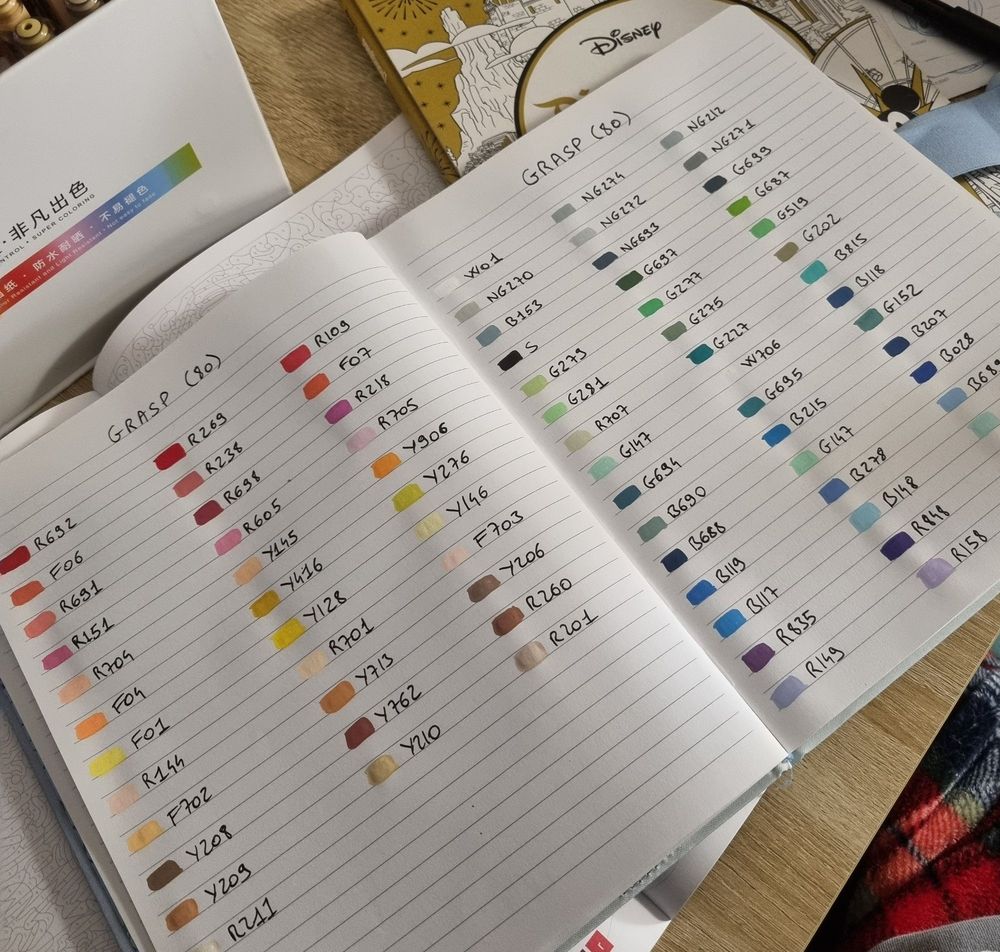 ·非凡出色
NTROL · SUPER COLORING
纸 · 防水耐晒 · 不易褪色
Resistant and Light Resistant · Not easy to fade
DISNEY
GRASP (80)
R692
F06
R691
R151
R704
F04
F01
R144
F702
Y208
Y209
R211
R269
R238
R698
R605
Y145
Y416
Y128
R701
Y713
Y762
Y210
R109
F07
R218
R705
Y906
Y276
Y146
F703
Y206
R260
R201
GRASP (80)
W01
NG270
B153
S
G279
G281
R707
G147
G694
B690
B688
B119
B117
R835
R149
NG274
NG272
NG693
G697
G277
G275
G227
W706
G695
B215
G147
B278
B148
R848
R158
NG212
NG271
G699
G687
G519
G202
B815
B118
G152
B207
B028
B689